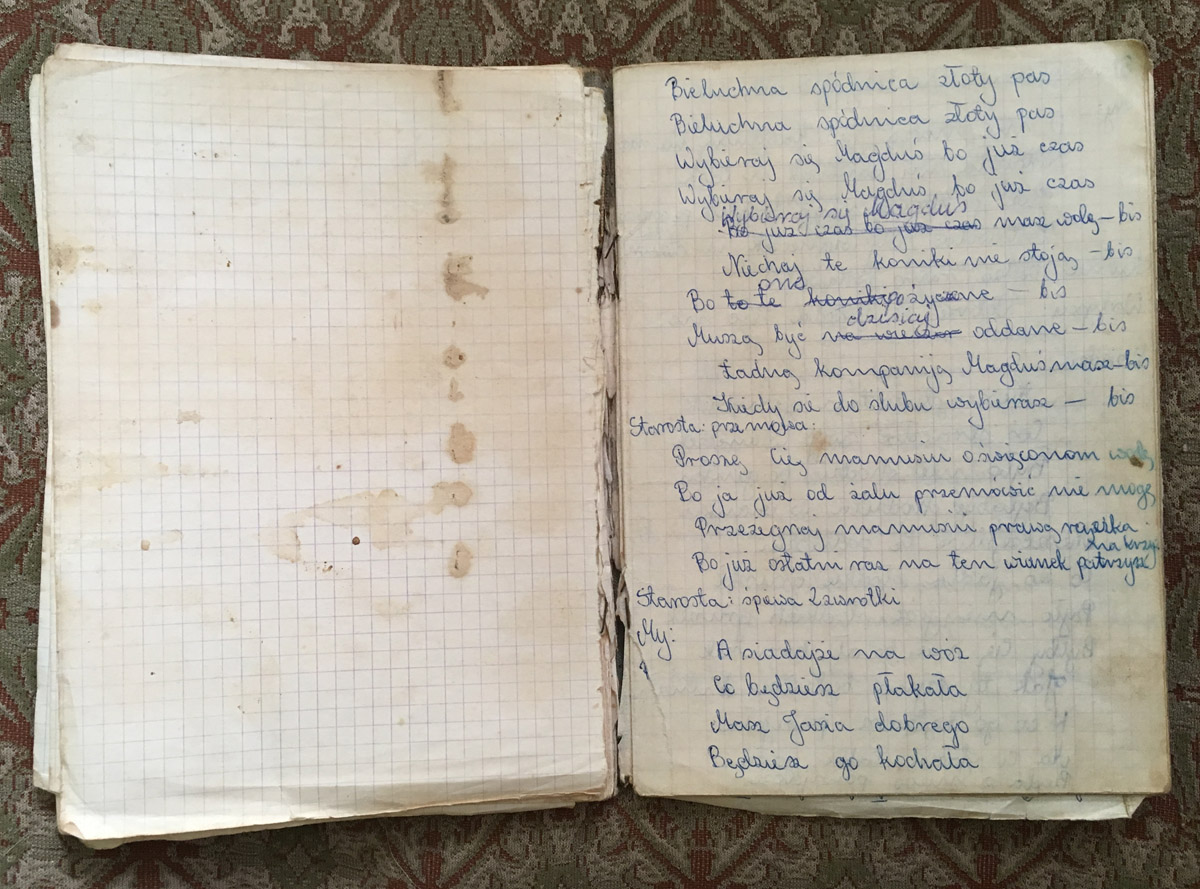 Bieluchna spódnica złoty pas
Bieluchna spódnica złoty pas
Wybieraj się Magduś bo już czas
Wybieraj się Magduś bo już czas
Wybieraj się Magduś
Bo już czas bo już czas masz wolę – bis
Niechaj te koniki nie stoją – bis
one
Bo to te koniki pożyczone – bis
dzisiej
Muszą być na wieczór oddane – bis
Ładną kompaniją Magduś masz – bis
Kiedy sie do ślubu wybierasz – bis
Starosta: przemowa:
Proszę Cię mamusiu oświęconom wodę
Bo ja już od żalu przemówić nie mogę
Przeżegnaj mamusiu prawą rączką
na krzyż
Bo już ostatni raz na ten wianek patrzysz
Starosta: śpiewa 2 zwrotki
My:
A siadajże na wóz
Co będziesz płakała
Masz Jasia dobrego
Będziesz go kochała